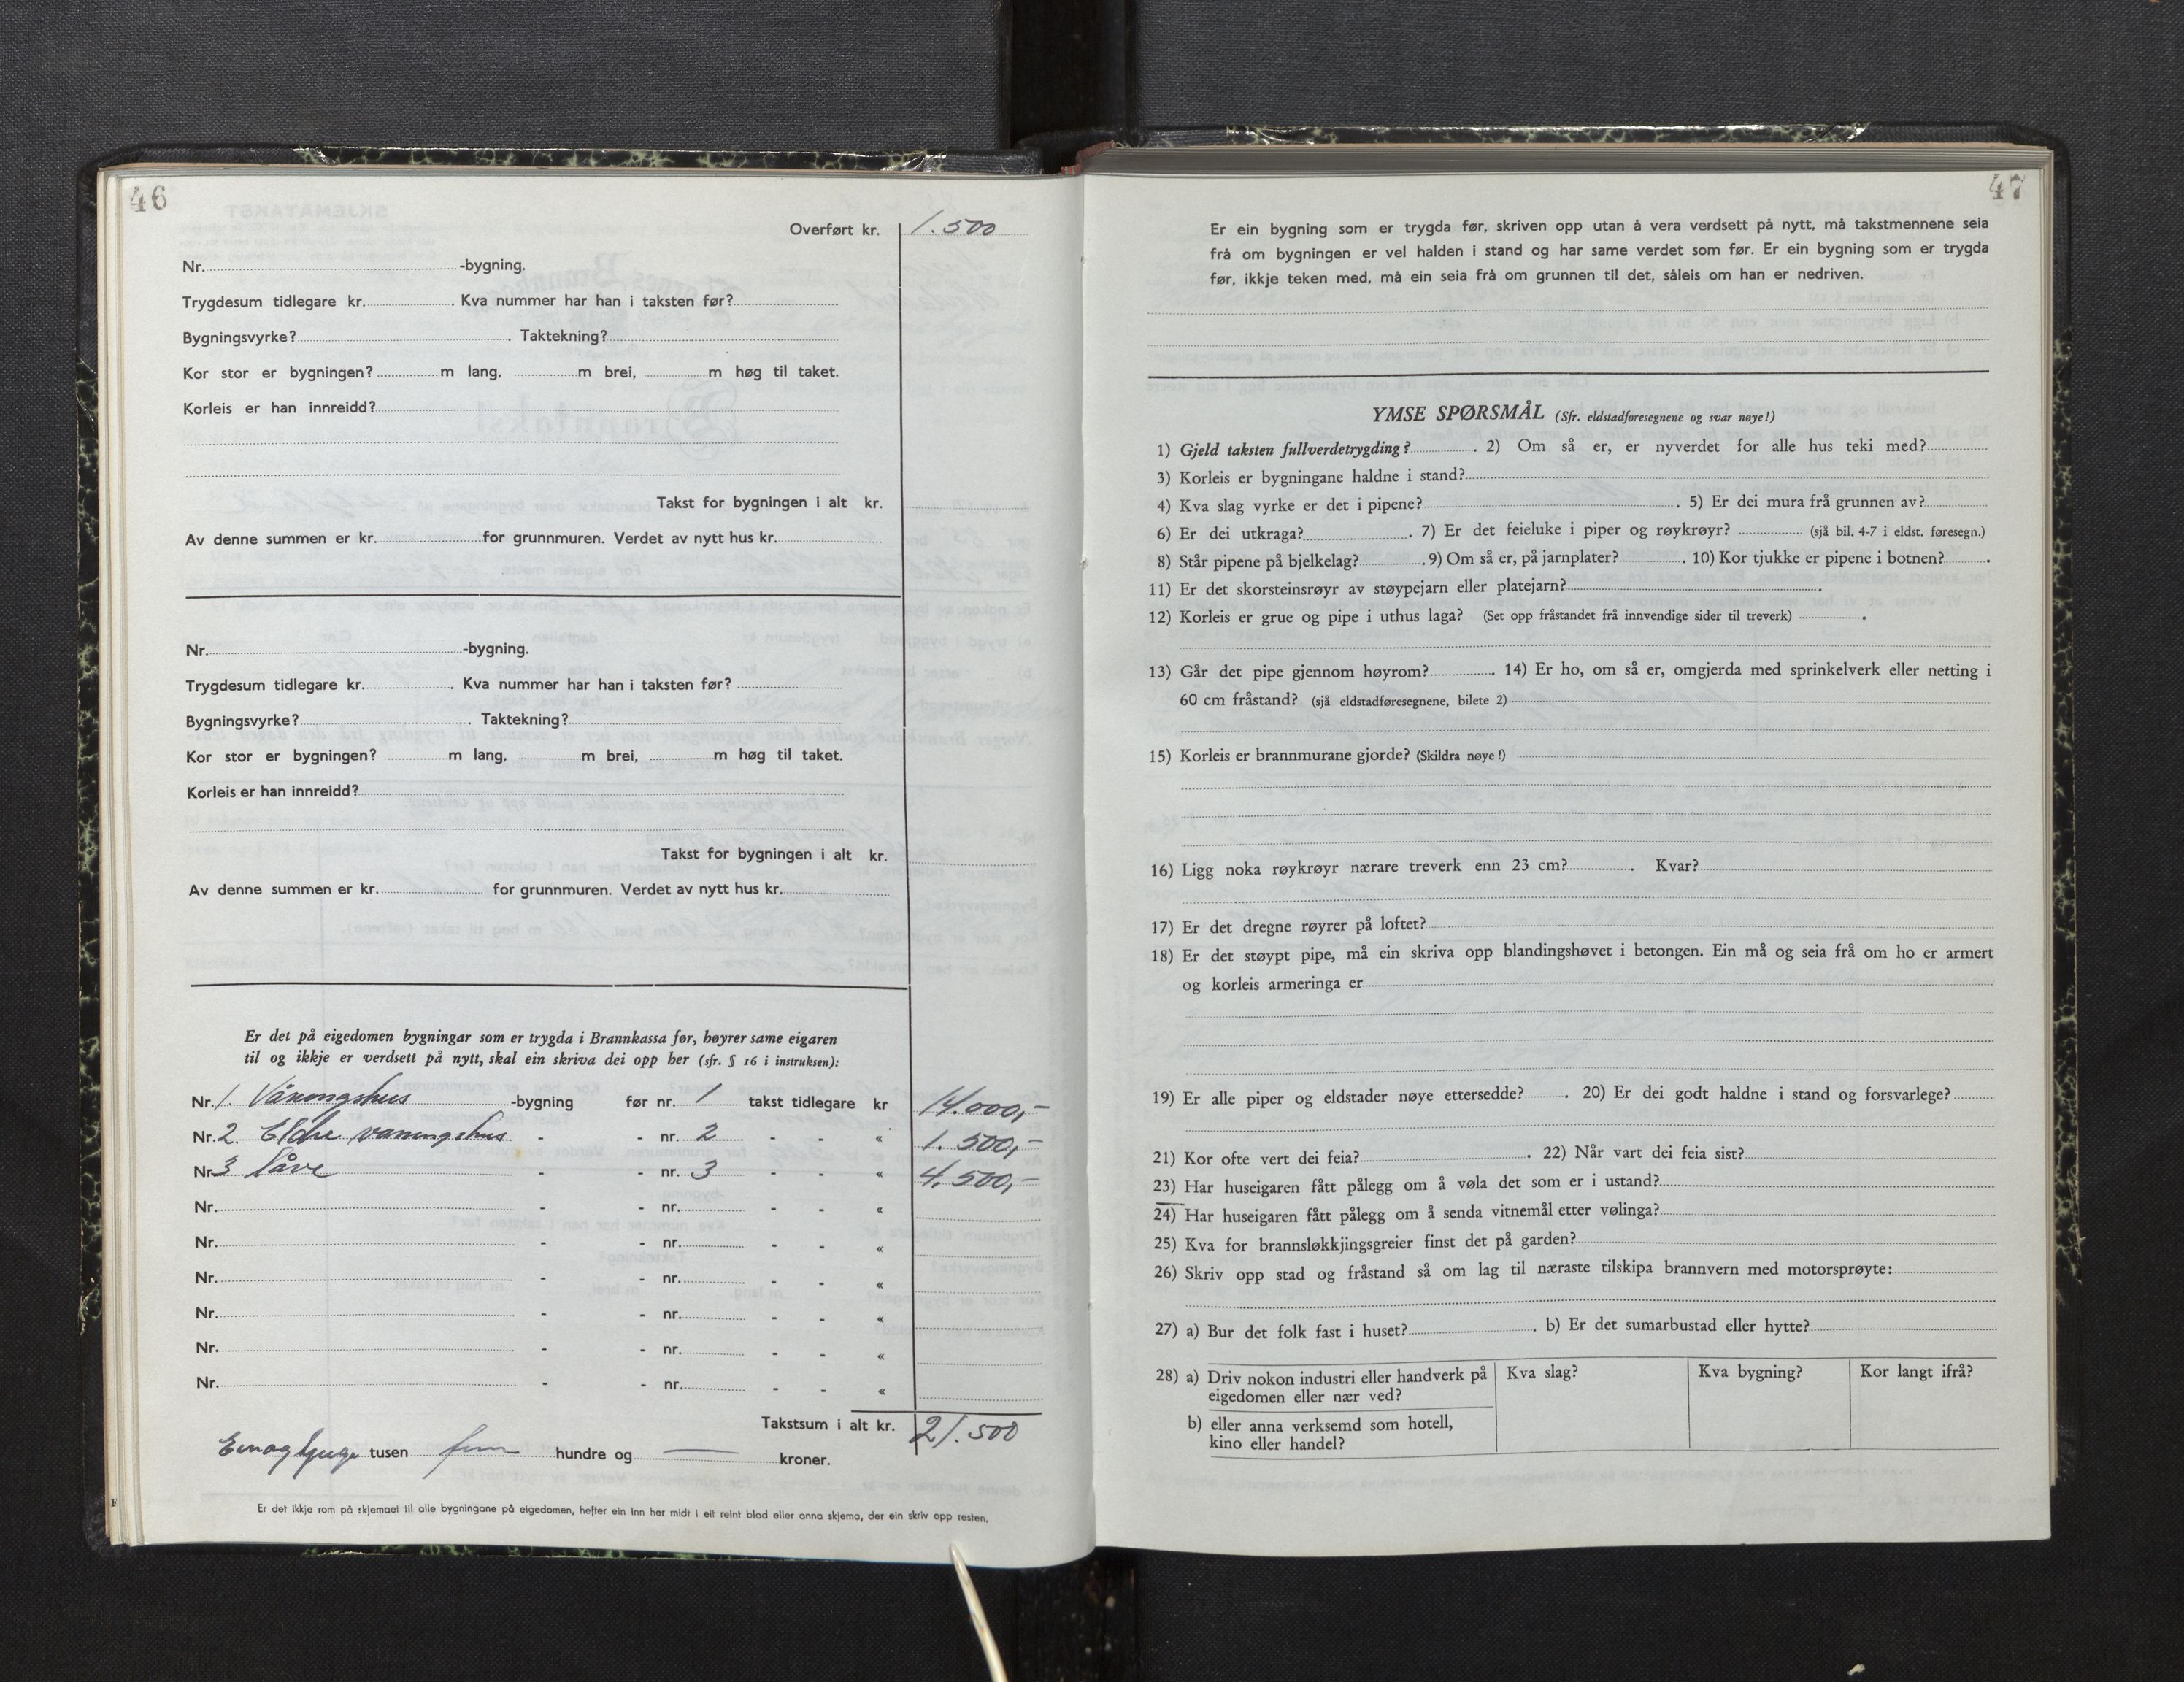 46
Overført kr. 1.500
Nr. -bygning.
Trygdesum tidlegare kr. . Kva nummer har han i taksten før?
Bygningsvyrke? . Taktekning?
Kor stor er bygningen? m lang, m brei, m høg til taket.
Korleis er han innreidd?
Takst for bygningen i alt kr.
Av denne summen er kr. for grunnmuren. Verdet av nytt hus kr.
Nr. -bygning.
Trygdesum tidlegare kr. . Kva nummer har han i taksten før?
Bygningsvyrke? . Taktekning?
Kor stor er bygningen? m lang, m brei, m høg til taket.
Korleis er han innreidd?
Takst for bygningen i alt kr.
Av denne summen er kr. for grunnmuren. Verdet av nytt hus kr.
Er det på eigedomen bygningar som er trygda i Brannkassa før, høyrer same eigaren
til og ikkje er verdsett på nytt, skal ein skriva dei opp her (sfr. § 16 i instruksen):
Nr. 1. Våningshus -bygning før nr. 1 takst tidlegare kr 14.000,-
Nr. 2 Eldre vaningshus - - nr. 2 - - « 1.500,-
Nr. 3 Låve - - nr. 3 - - « 4.500,-
Nr. - - nr. - - «
Nr. - - nr. - - «
Nr. - - nr. - - «
Nr. - - nr. - - «
Nr. - - nr. - - «
Nr. - - nr. - - «
Takstsum i alt kr. 21.500
Einogtjuge tusen fem hundre og — kroner.
Er det ikkje rom på skjemaet til alle bygningane på eigedomen, hefter ein inn her midt i eit reint blad eller anna skjema, der ein skriv opp resten.
47
Er ein bygning som er trygda før, skriven opp utan å vera verdsett på nytt, må takstmennene seia
frå om bygningen er vel halden i stand og har same verdet som før. Er ein bygning som er trygda
før, ikkje teken med, må ein seia frå om grunnen til det, såleis om han er nedriven.
YMSE SPØRSMÅL (Sfr. eldstadføresegnene og svar nøye!)
1) Gjeld taksten fullverdetrygding? . 2) Om så er, er nyverdet for alle hus teki med?
3) Korleis er bygningane haldne i stand?
4) Kva slag vyrke er det i pipene? . 5) Er dei mura frå grunnen av?
6) Er dei utkraga? . 7) Er det feieluke i piper og røykrøyr? (sjå bil. 4-7 i eldst. føresegn.)
8) Står pipene på bjelkelag? . 9) Om så er, på jarnplater? . 10) Kor tjukke er pipene i botnen? .
11) Er det skorsteinsrøyr av støypejarn eller platejarn? .
12) Korleis er grue og pipe i uthus laga? (Set opp fråstandet frå innvendige sider til treverk) .
13) Går det pipe gjennom høyrom? . 14) Er ho, om så er, omgjerda med sprinkelverk eller netting i
60 cm fråstand? (sjå eldstadføresegnene, bilete 2)
15) Korleis er brannmurane gjorde? (Skildra nøye!)
16) Ligg noka røykrøyr nærare treverk enn 23 cm? . Kvar?
17) Er det dregne røyrer på loftet?
18) Er det støypt pipe, må ein skriva opp blandingshøvet i betongen. Ein må og seia frå om ho er armert
og korleis armeringa er
19) Er alle piper og eldstader nøye ettersedde? . 20) Er dei godt haldne i stand og forsvarlege?
21) Kor ofte vert dei feia? . 22) Når vart dei feia sist?
23) Har huseigaren fått pålegg om å vøla det som er i ustand?
24) Har huseigaren fått pålegg om å senda vitnemål etter vølinga?
25) Kva for brannsløkkjingsgreier finst det på garden?
26) Skriv opp stad og fråstand så om lag til næraste tilskipa brannvern med motorsprøyte:
27) a) Bur det folk fast i huset? . b) Er det sumarbustad eller hytte?
28) a) Driv nokon industri eller handverk på Kva slag? Kva bygning? Kor langt ifrå?
eigedomen eller nær ved?
b) eller anna verksemd som hotell,
kino eller handel?